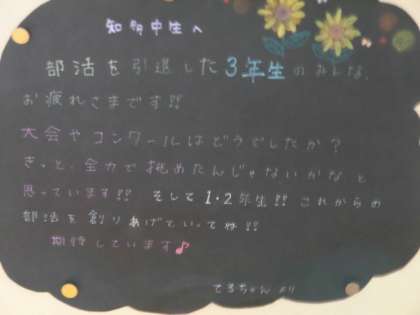 知多中生へ
部活を引退した3年生のみんな、
お疲れさまです!!
大会やコンクールはどうでしたか？
きっと、全力で挑めたんじゃないかなと
思っています!! そして1・2年生!! これからの
部活を創りあげていってね!!
期待しています♪
てるちゃんより